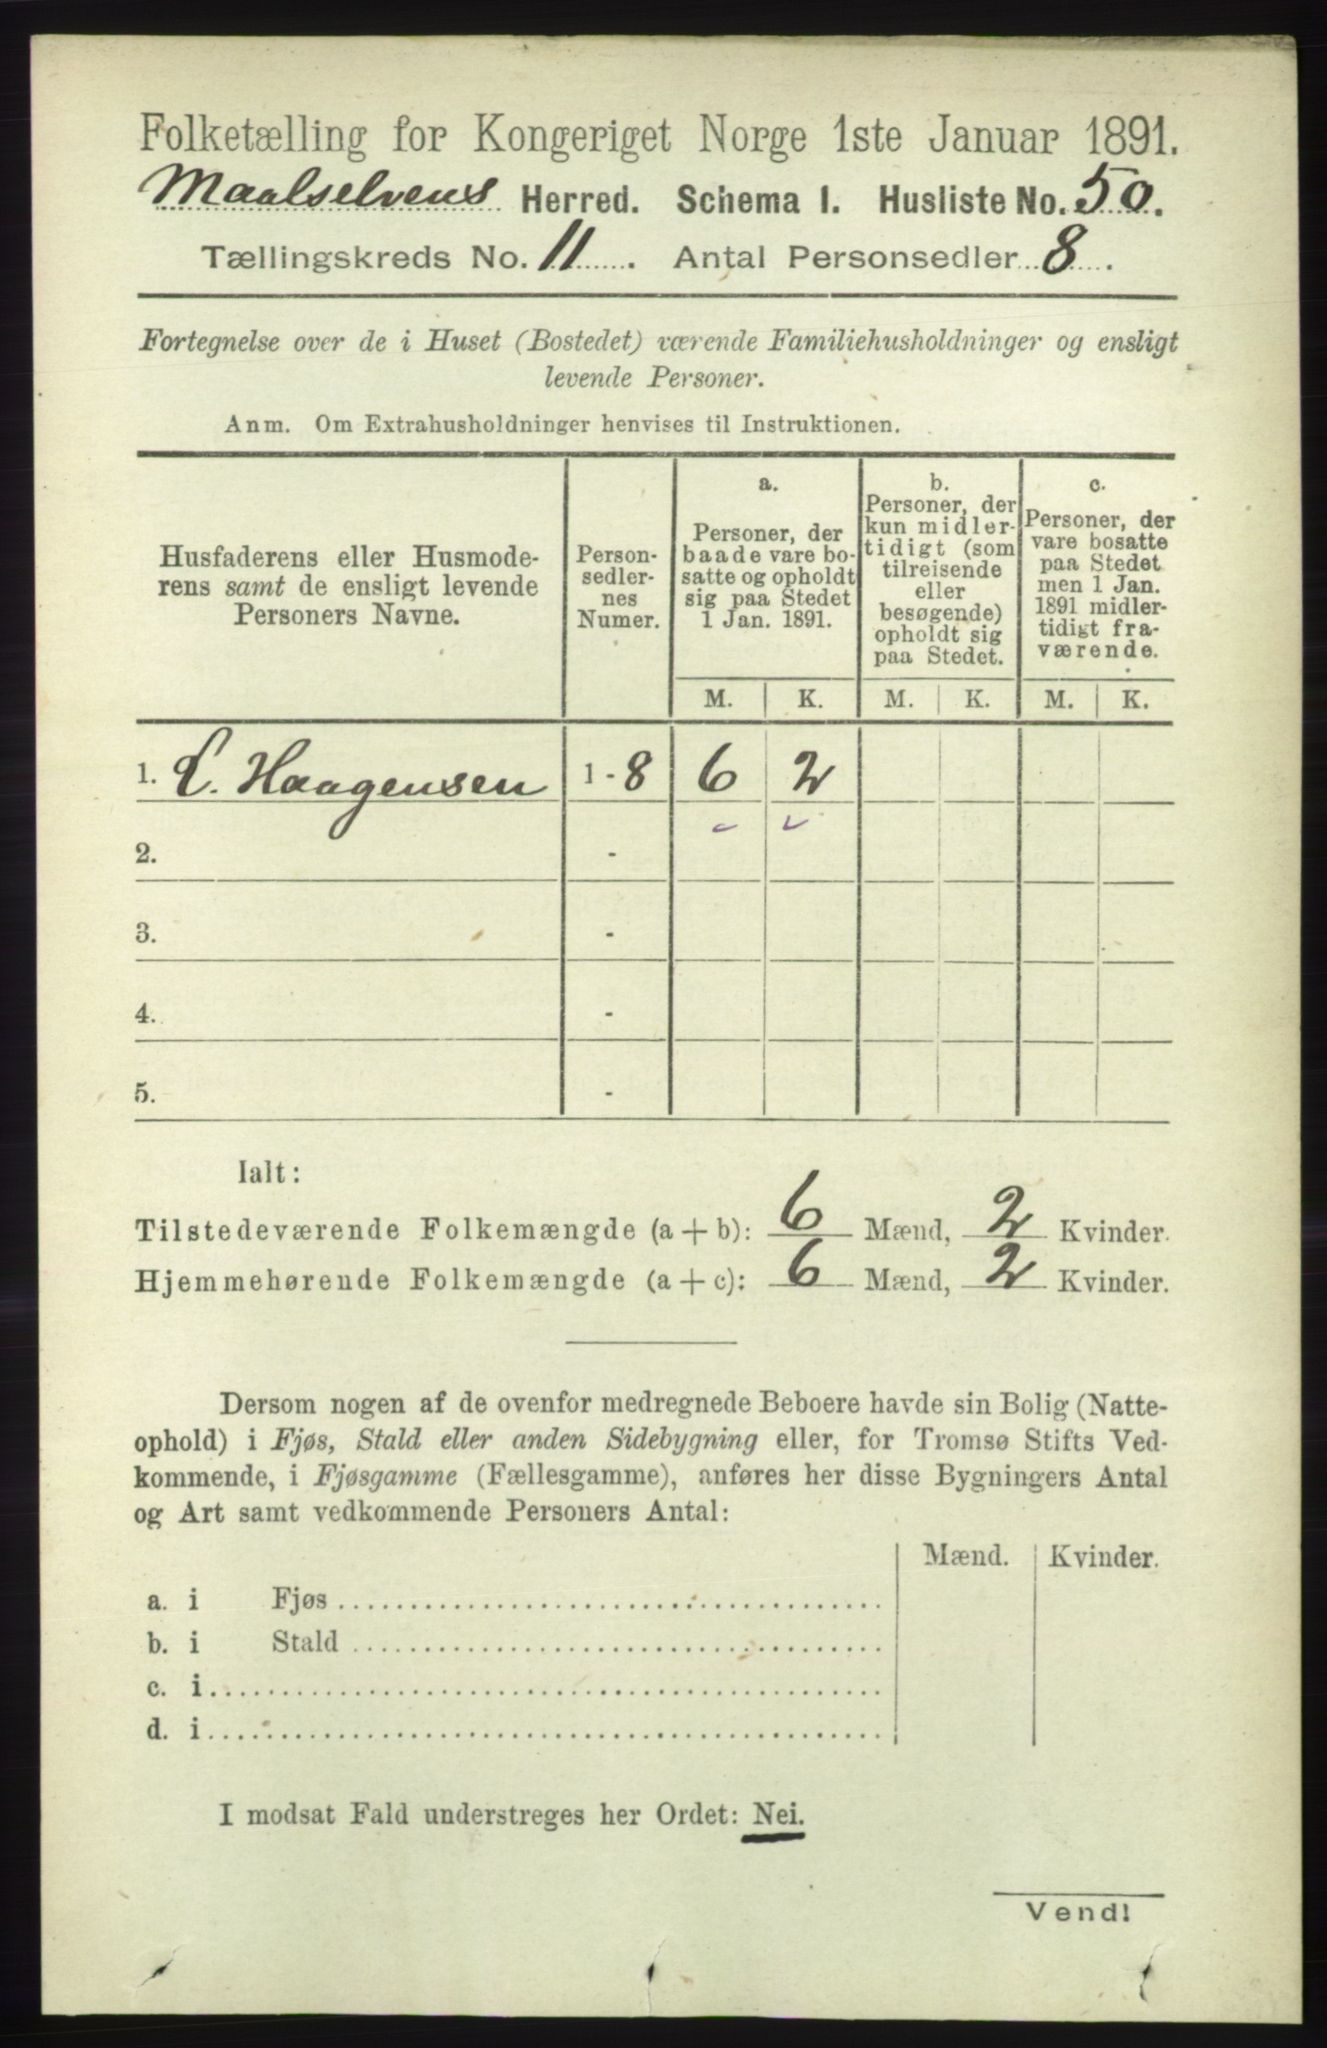 Folketælling for Kongeriget Norge 1ste Januar 1891.
Maalselvens Herred. Schema 1. Husliste No. 50.
Tællingskreds No. 11. Antal Personsedler 8.
Fortegnelse over de i Huset (Bostedet) værende Familiehusholdninger og ensligt
levende Personer.
Anm. Om Extrahusholdninger henvises til Instruktionen.
Husfaderens eller Husmode-
rens samt de ensligt levende
Personers Navne.
Person-
sedler-
nes
Numer.
a.
Personer, der
baade vare bo-
satte og opholdt
sig paa Stedet
1 Jan. 1891.
b.
Personer, der
kun midler-
tidigt (som
tilreisende
eller
besøgende)
opholdt sig
paa Stedet.
c.
Personer, der
vare bosatte
paa Stedet
men 1 Jan.
1891 midler-
tidigt fra-
værende.
M. K. M. K. M. K.
1. Haagensen 1-8 6 2
2. -
3. -
4. -
5. -
Ialt:
Tilstedeværende Folkemængde (a + b): 6 Mænd, 2 Kvinder.
Hjemmehørende Folkemængde (a + c): 6 Mænd, 2 Kvinder.
Dersom nogen af de ovenfor medregnede Beboere havde sin Bolig (Natte-
ophold) i Fjøs, Stald eller anden Sidebygning eller, for Tromsø Stifts Ved-
kommende, i Fjøsgamme (Fællesgamme), anføres her disse Bygningers Antal
og Art samt vedkommende Personers Antal:
Mænd. Kvinder.
a. i Fjøs
b. i Stald
c. i
d. i
I modsat Fald understreges her Ordet: Nei.
Vend!